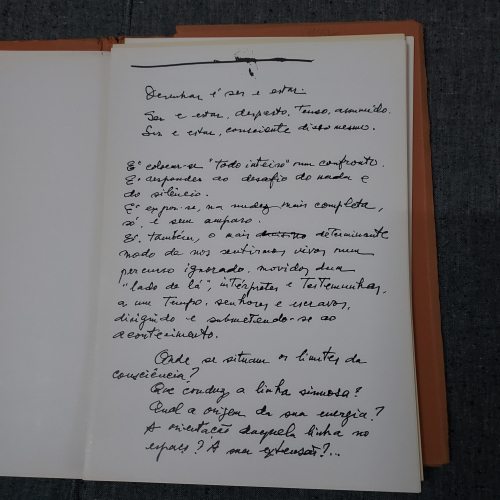 Desenhar é ser e estar.
Ser e estar, desperto. Tenso, assumido.
Ser e estar, consciente disso mesmo.
É colocar-se "todo inteiro" num confronto.
É responder ao desafio do nada e
do silêncio.
É expor-se, na nudez mais completa,
só e sem amparo.
É, também, o mais determinante
modo de nos sentirmos vivos num
percurso ignorado, movidos dum
"lado de lá", intérpretes e testemunhas,
a um tempo, senhores e escravos,
dirigindo e submetendo-se ao
acontecimento.
Onde se situam os limites da
consciência?
Que conduz a linha sinuosa?
Qual a origem da sua energia?
A orientação daquela linha no
espaço? A sua extensão?...